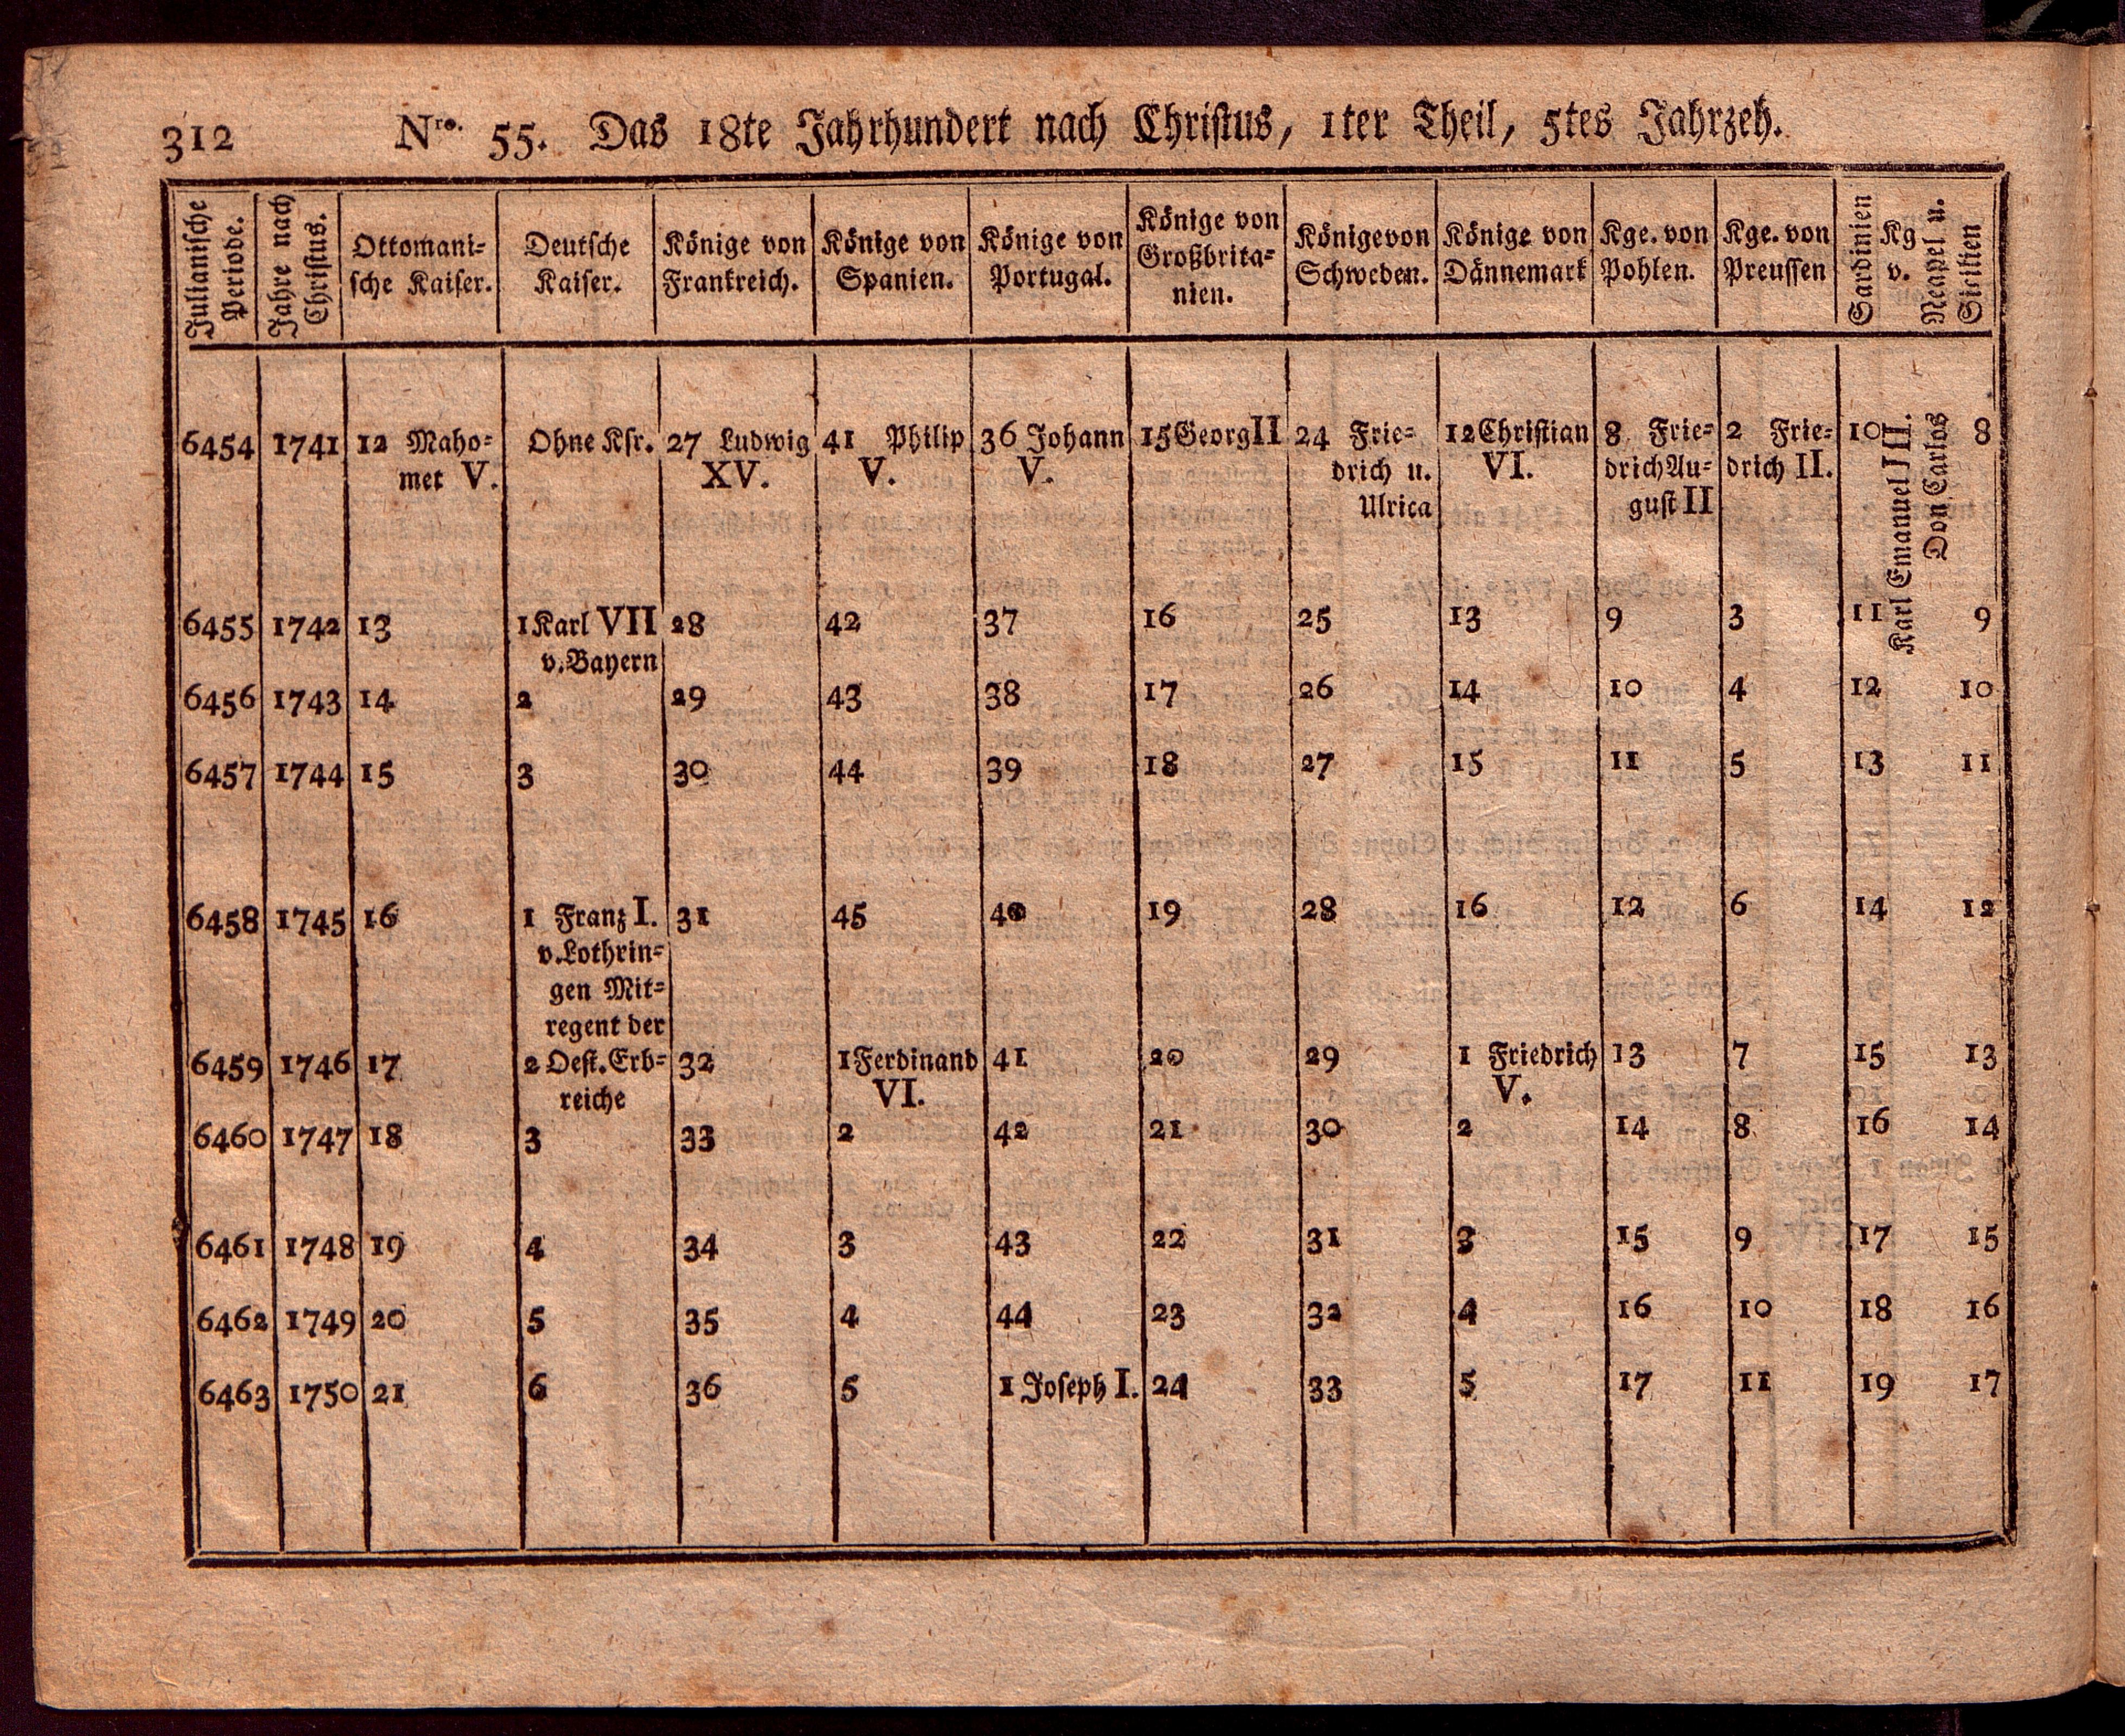 312 Nro. 55. Das 18te Jahrhundert nach Christus, 1ter Theil, 5tes Jahrzeh.
Julianische Periode. | Jahre nach Christus. | Ottomani-sche Kaiser. | Deutsche Kaiser. | Könige von Frankreich. | Könige von Spanien. | Könige von Portugal. | Könige von Großbrita-nien. | Könige von Schweden. | Könige von Dännemark | Kge. von Pohlen. | Kge. von Preussen | Kg v. Sardinien | Neapel u. Sicilien
6454 1741 12 Maho- Ohne Ksr. 27 Ludwig 41 Philip 36 Johann 15 Georg II 24 Frie- 12 Christian 8 Frie- 2 Frie- 10 8
met V. XV. V. V. drich u. VI. drich Au- drich II.
Ulrica gust II
Karl Emanuel III.
Don Carlos
6455 1742 13 1 Karl VII 28 42 37 16 25 13 9 3 11 9
v. Bayern
6456 1743 14 2 29 43 38 17 26 14 10 4 12 10
6457 1744 15 3 30 44 39 18 27 15 11 5 13 11
6458 1745 16 1 Franz I. 31 45 40 19 28 16 12 6 14 12
v. Lothrin-
gen Mit-
regent der
6459 1746 17 2 Oest. Erb- 32 1 Ferdinand 41 20 29 1 Friedrich 13 7 15 13
reiche VI. V.
6460 1747 18 3 33 2 42 21 30 2 14 8 16 14
6461 1748 19 4 34 3 43 22 31 3 15 9 17 15
6462 1749 20 5 35 4 44 23 32 4 16 10 18 16
6463 1750 21 6 36 5 1 Joseph I. 24 33 5 17 11 19 17